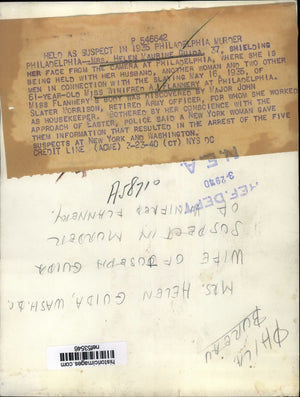 P 546642
HELD AS SUSPECT IN 1935 PHILADELPHIA MURDER
PHILADELPHIA--MRS. HELEN LAURINE GUIDA, 37, SHIELDING
HER FACE FROM THE CAMERA AT PHILADELPHIA, WHERE SHE IS
BEING HELD WITH HER HUSBAND, ANOTHER WOMAN AND TWO OTHER
MEN IN CONNECTION WITH THE SLAYING MAY 16, 1935, OF
51-YEAR-OLD MISS WINIFRED A. FLANNERY AT PHILADELPHIA.
MISS FLANNERY'S BODY WAS DISCOVERED BY MAJOR JOHN
SLATER MORRISON, RETIRED ARMY OFFICER, FOR WHOM SHE WORKED
AS HOUSEKEEPER. BOTHERED BY HER CONSCIENCE WITH THE
APPROACH OF EASTER, POLICE SAID A NEW YORK WOMAN GAVE
THEM INFORMATION THAT RESULTED IN THE ARREST OF THE FIVE
SUSPECTS AT NEW YORK AND WASHINGTON.
CREDIT LINE (ACME) 2-23-40 (CT) NYS DC
N.E.A.
REF. DEPT.
3-29-40
MRS. HELEN GUIDA, WASH. D.C.
WIFE OF JOSEPH GUIDA
SUSPECT IN MURDER
OF WINIFRED FLANNERY.
PHILA
BUREAU
historicimages.com
nef53546